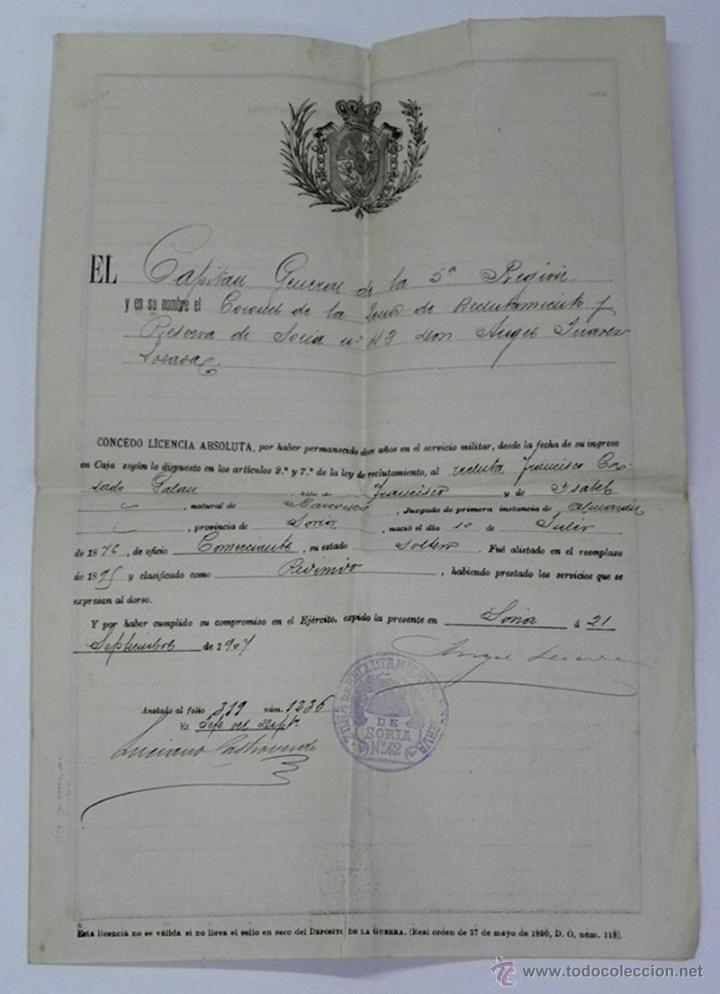 EL Capitan General de la 5ª Región
y en su nombre el Coronel de la Zona de Reclutamiento y
Reserva de Soria nº 43 don Angel Suarez
CONCEDO LICENCIA ABSOLUTA, por haber permanecido doce años en el servicio militar, desde la fecha de su ingreso
en Caja según lo dispuesto en los artículos 2.º y 7.º de la ley de reclutamiento, al recluta Francisco Ca-
sado Palau, hijo de Francisco y de Isabel
, natural de, Juzgado de primera instancia de Almazán
, provincia de Soria, nació el día 10 de Julio
de 1876, de oficio Comerciante, su estado Soltero. Fué alistado en el reemplazo
de 1895 y clasificado como Redimido, habiendo prestado los servicios que se
expresan al dorso.
Y por haber cumplido su compromiso en el Ejército, expido la presente en Soria á 21
Septiembre de 1907
Angel
Anotado al folio 319 núm. 1236
El Jefe del Detp.
Luciano
ZONA DE RECLUTAMIENTO RESERVA
DE
SORIA
Nº 42
Esta licencia no es válida si no lleva el sello en seco del DEPÓSITO DE LA GUERRA. (Real orden de 27 de mayo de 1890, D. O. núm. 118).
www.todocoleccion.net